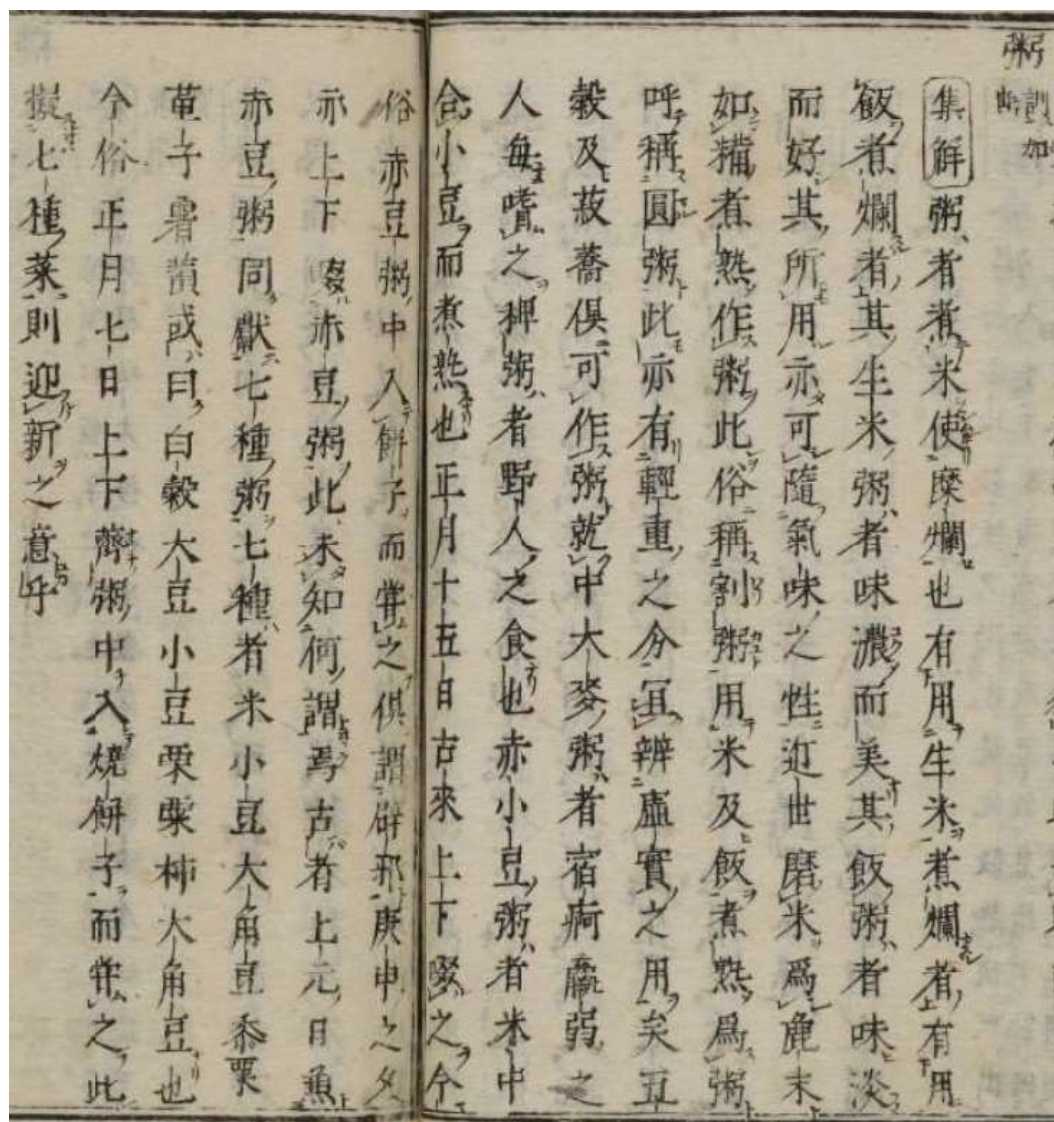 粥
訓加
由
集解粥者煮米使糜爛也有用生米煮爛者有用
飯煮爛者其生米粥者味濃而美其飯粥者味淡
而好其所用亦可隨氣味之性近世磨米爲麁末
如糒煮熟作粥此俗稱割粥用米及飯煮熟爲粥
呼稱圓粥此亦有輕重之分冝辨虛實之用矣五
穀及菽蕎倶可作粥就中大麥粥者宿痾羸弱之
人每嗜之稗粥者野人之食也赤小豆粥者米中
合小豆而煮熟也正月十五日古來上下啜之今
俗赤豆粥中入餅子而嘗之倶謂辟邪庚申之夕
亦上下啜赤豆粥此未知何謂焉古者上元日煮
赤豆粥同獻七種粥七種者米小豆大角豆黍粟
菫子薯蕷或曰白穀大豆小豆栗粟柿大角豆也
今俗正月七日上下薺粥中入燒餅子而嘗之此
擬七種菜則迎新之意乎